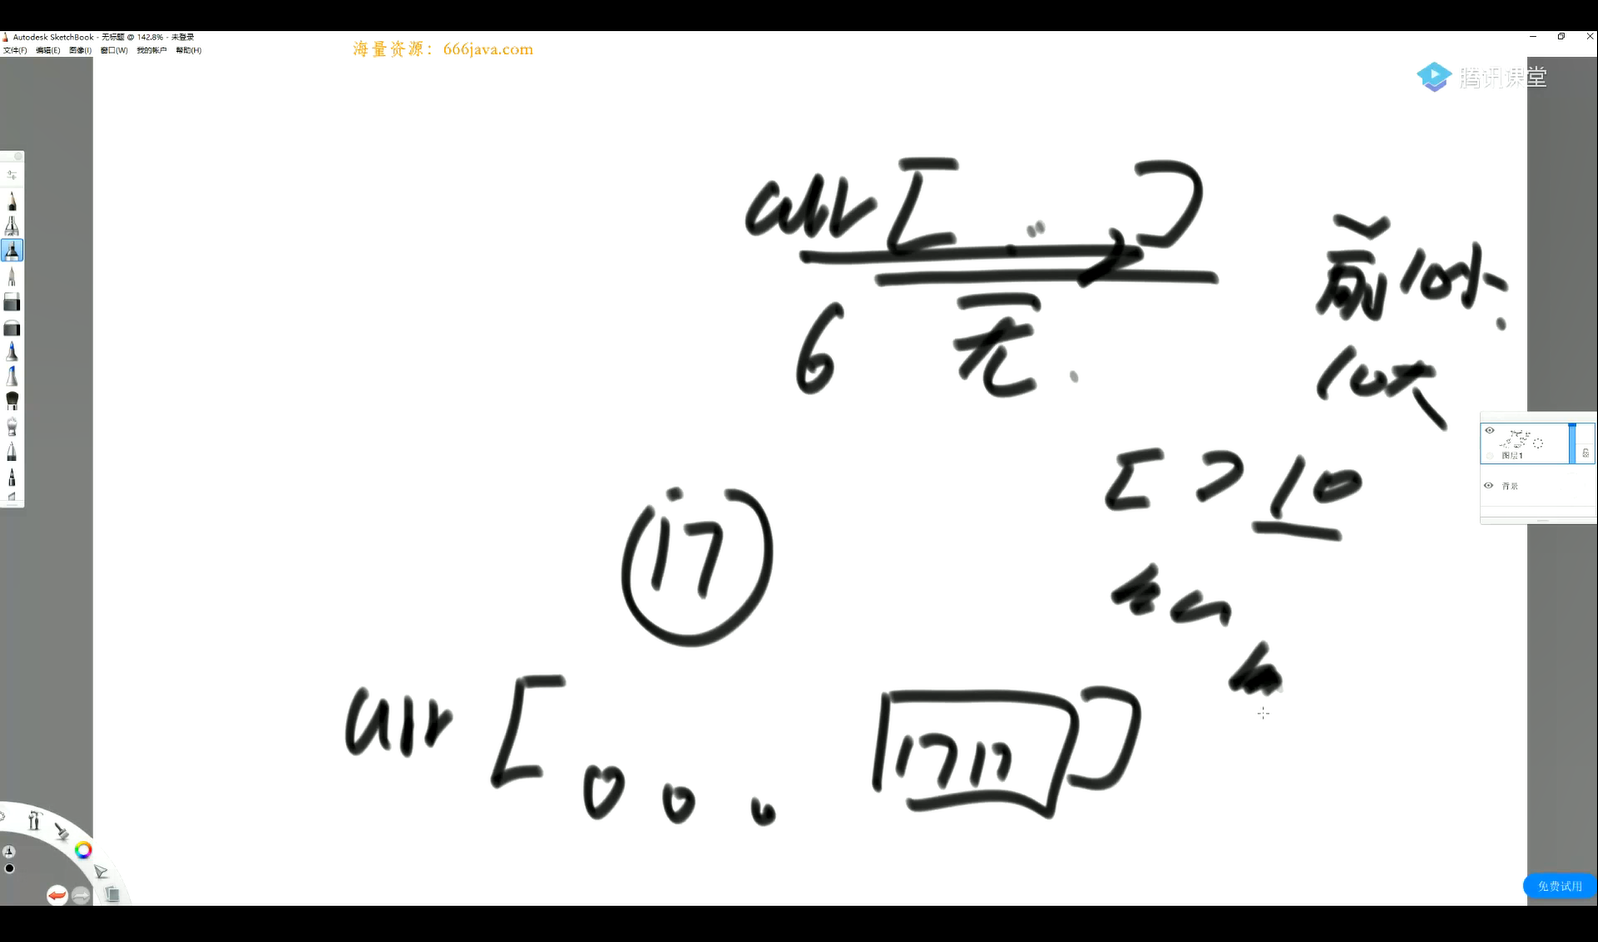 Autodesk SketchBook - 无标题 @ 142.8% - 未登录
文件(F) 编辑(E) 图像(I) 窗口(W) 我的帐户 帮助(H)
海量资源：666java.com
腾讯课堂
arr [ .. ]
6 无.
前10小.
10大
[ ] 10
17
arr [ 0 0 0 17 17 ]
图层1
背景
免费试用